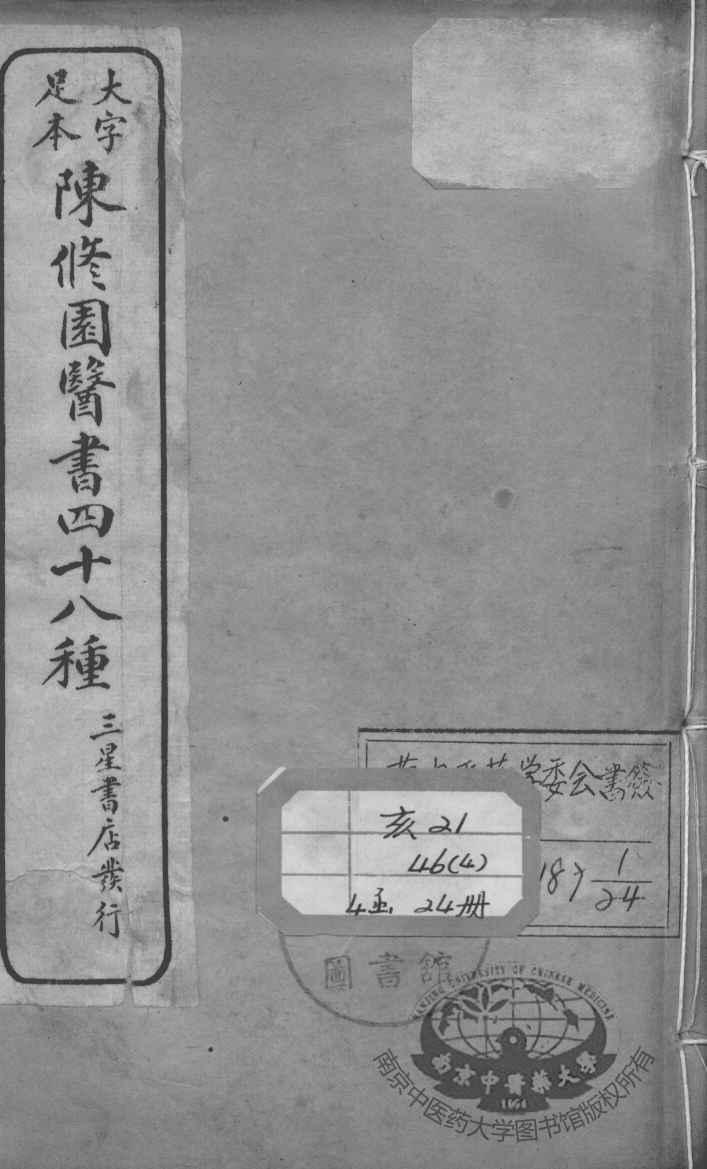 大字
足本
陳修園醫書四十八種
三星書店發行
学委会書籤
18)
1
24
亥 21
46(4)
4函 24册
圖書館
NANJING UNIVERSITY OF CHINESE MEDICINE
南京中醫藥大學
1954
南京中医药大学图书馆版权所有